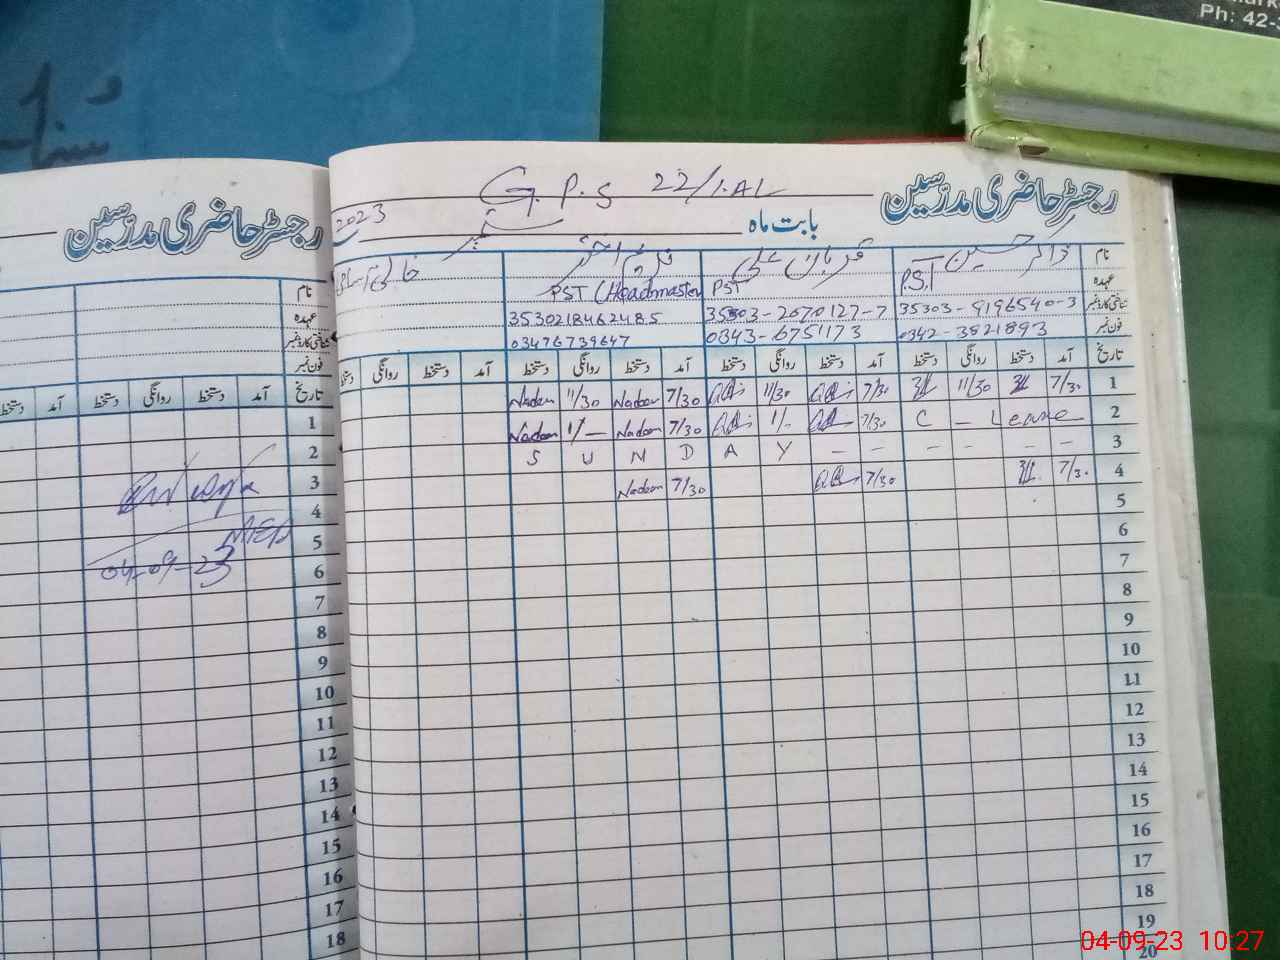 Ph: 42-
رجسٹر حاضری مدرّسین
G.P.S 22/1.AL
رجسٹر حاضری مدرّسین
بابت ماہ
2023
نام ذاکر حسین قربان علی خالی آسامی
عہدہ P.S.T PST PST (Headmaster
شناختی کارڈ نمبر 35303-9196540-3 35303-2070127-7 3530218462485
فون نمبر 0342-3521893 0343-6751173 03476739647
تاریخ آمد دستخط روانگی دستخط آمد دستخط روانگی دستخط آمد دستخط روانگی دستخط آمد دستخط روانگی دستخط
Nadeem 11/30 Nadeem 7/30 11/30 7/30 11/30 7/30 1
Nadeem 1/- Nadeem 7/30 1/- 7/30 C - Leave 2
S U N D A Y - - - - - - 3
Nadeem 7/30 7/30 7/30 4
5
6
7
8
9
10
11
12
13
14
15
16
17
18
19
20
نام
عہدہ
شناختی کارڈ نمبر
فون نمبر
تاریخ آمد دستخط روانگی دستخط آمد دستخط
1
2
3
4
5
04-09-23
6
7
8
9
10
11
12
13
14
15
16
17
18
04-09-23 10:27